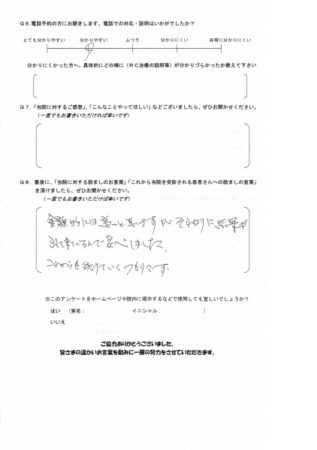 Q6.電話予約の方にお聞きします。電話での対応・説明はいかがでしたか？
とても分かりやすい 分かりやすい ふつう 分かりにくい 非常に分かりにくい
分かりにくかった方へ、具体的にどの様に（RC治療の説明等）が分かりづらかったか教えて下さい
Q7.「当院に対するご感想」「こんなことやってほしい」などございましたら、ぜひお聞かせください。
（一言でもお書きいただければ幸いです）
Q8.最後に、「当院に対する励ましのお言葉」「これから当院を受診される患者さんへの励ましの言葉」
を頂けましたら、ぜひお聞かせください。
（一言でもお書きいただければ幸いです）
金額的には高いと思いますが それなりに結果が
出て来ているので安心しました。
これからも続けていくつもりです。
※このアンケートをホームページや院内に掲示するなどで使用しても宜しいでしょうか？
はい （実名： イニシャル： ）
いいえ
ご協力ありがとうございました。
皆さまの温かいお言葉を励みに一層の努力をさせていただきます。